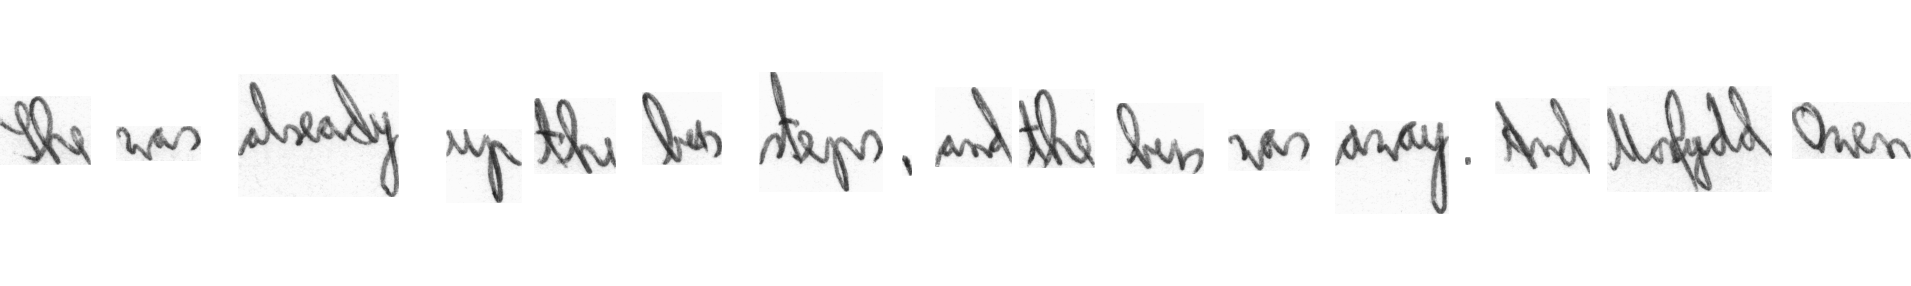 She was already up the bus steps, and the bus was away. And Morfydd Owen